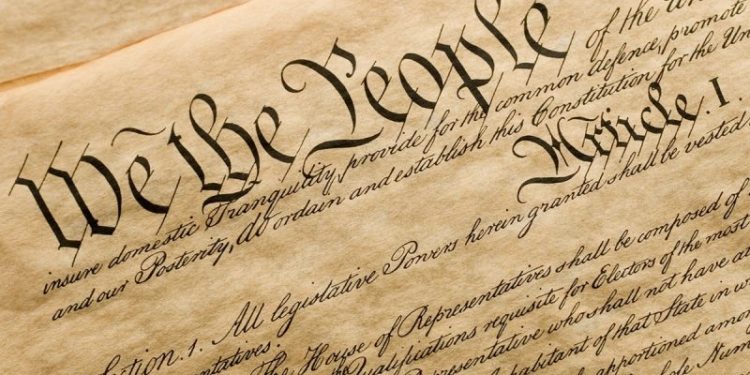 We the People of the Un
insure domestic Tranquility, provide for the common defence, promote
and our Posterity, do ordain and establish this Constitution for the Un
Article. I.
ection. 1. All legislative Powers herein granted shall be vested
entatives.
The House of Representatives shall be composed of
ualifications requisite for Electors of the most
presentative who shall not have a
habitant of that State in w
apportioned amon
hole Num